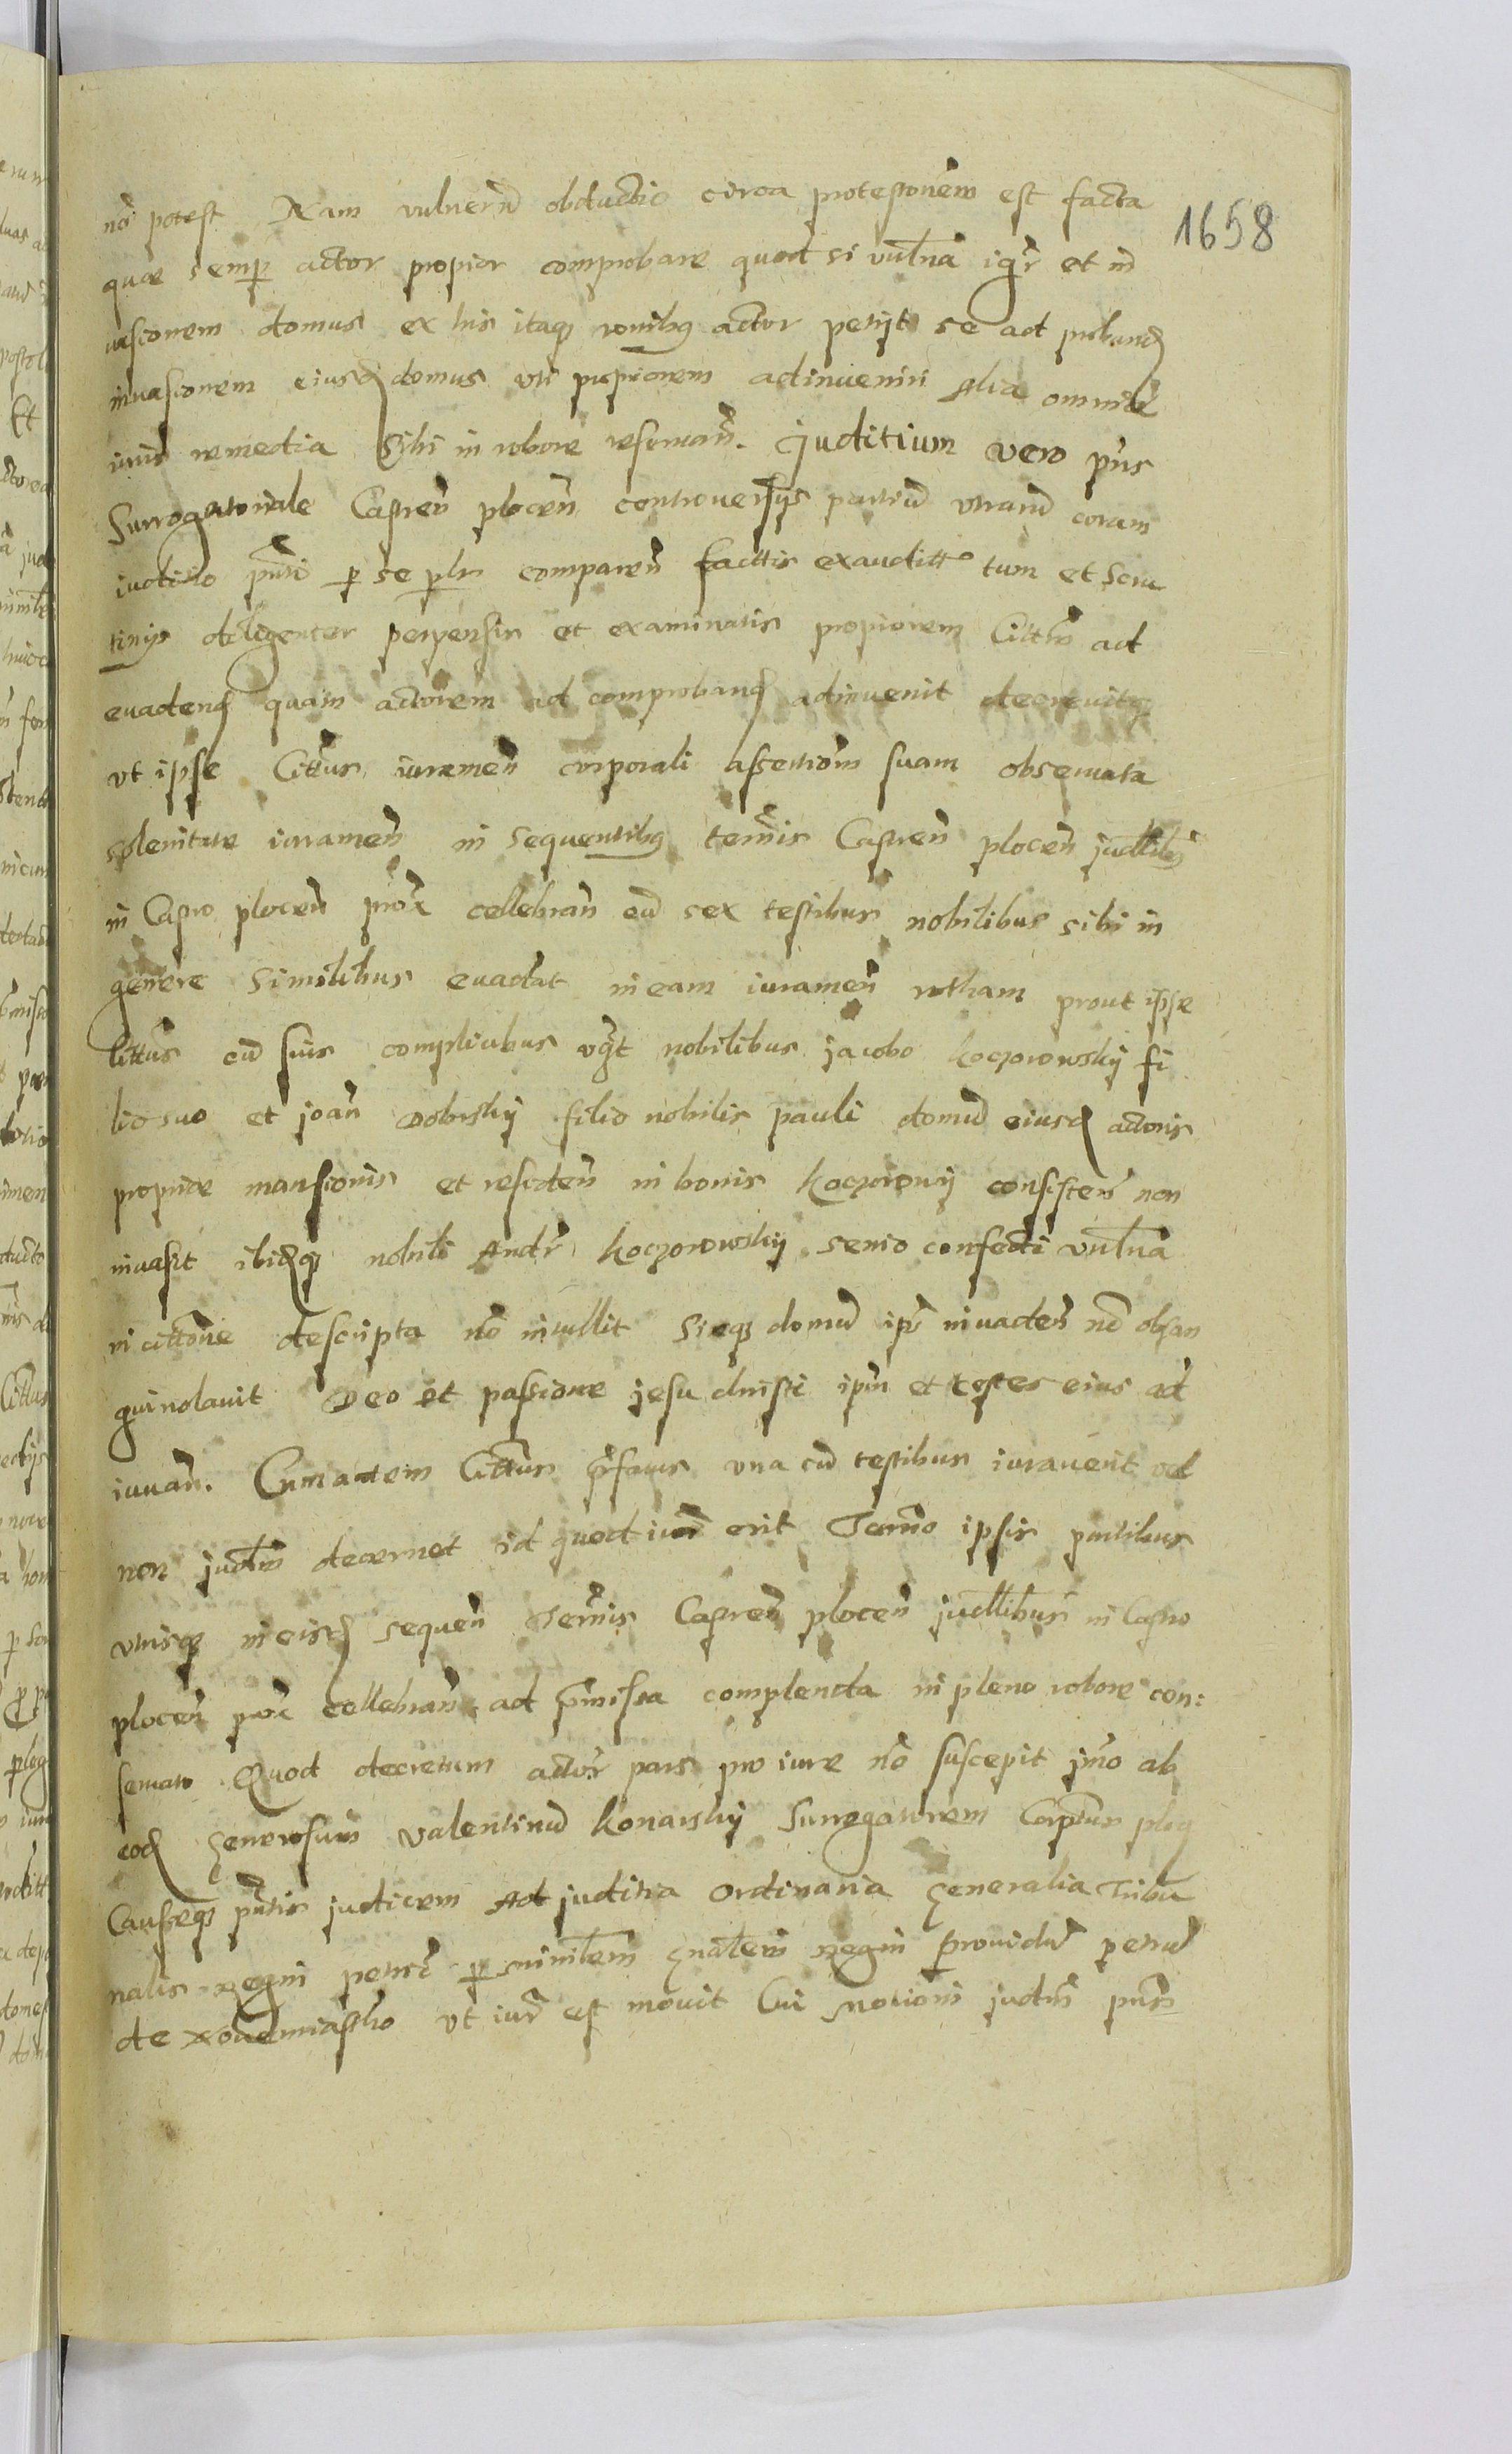 1658
nō potest Nam vulnerū obductio circa protestonēm est facta
quae semp actor propior comprobare quod si vulna igr et in
vasionem domus ex his itaq ronibq actor petijt se ad proband
invasionem eiusd domus uti propriorem adinveniri Alia omnia
iuris remedia Sibi in robore reservan̄. Juditium vero pn̄s
Surrogatoriale Castren̄ plocen̄ controversijs partiū utrarū coram
iuditio pn̄ti p se plr comparen̄ factis exauditt tum et scru
tinijs diligenter perpensis et examinatis propiorem Cittm̄ ad
evadend quam actorem ad comproband adinvenit decrevitq
vt ipse Cittus iuramen̄ corporali assertiom̄ suam observata
solenitate iuramen̄ in sequentibq termis Castren̄ plocen̄ judlibs
in Castro plocen̄ prox cellebran̄ cū sex testibus nobilibus sibi in
genere similibus evadat in eam iuramen̄ rotham prout ipse
Cittus cū suis complicibus vgt nobilibus jacobo koczorowskij fi
lio suo et joan̄ Dobrskij filio nobilis pauli domū eiusd actoris
propriae mansionis et residen̄ in bonis koczorowij consisten̄ non
invasit ibidq nobili Andr koczorowskij senio confecti vulna
in cittone descripta nō intullit Sicq domū ipr invaden̄ nō obsan
guinolavit Deo et passione jesu christi ipm̄ et testes eius ad
iuvan̄. Cum autem Cittus pr̄fatus una cū testibus iuraverit vel
non judm̄ decernet id quod iur erit Termo ipsis partibus
utrisq in eisd sequen̄ Termis Castren̄ plocen̄ judlibus in Castro
plocen̄ prox cellebran̄ ad pm̄issa complenda in pleno robore con:
servato Quod decretum actor pars pro iure nō suscepit jmo ab
eod Generosum Valentinū konarskij Surrogatorem Captus plocq
Causseq pn̄tis judicem Ad juditia ordinaria Generalia Tribu
nalis regni petric p minlem gnalem regni providū petrū
de Novemiastho ut iur est movit Cui motioni judm̄ pn̄s